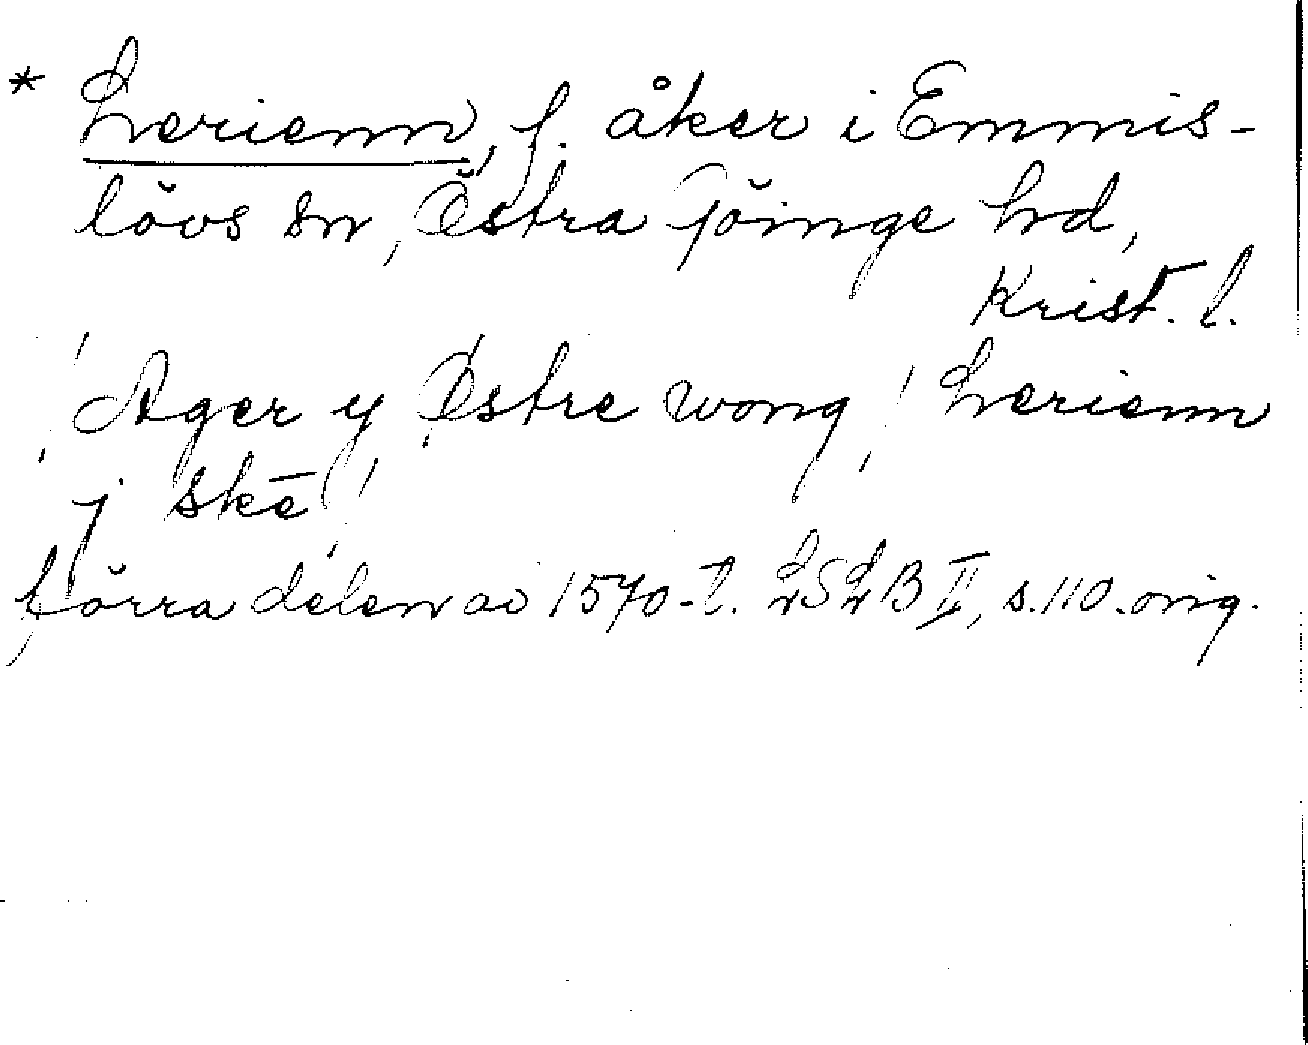 * Lerienn, f. åker i Emmis-
lövs sn, Östra Göinge hd,
Krist. l.
'Ager y Østre wong', 'Lerienn
j skē'
förra delen av 1570-t. LSLB II, s. 110. orig.